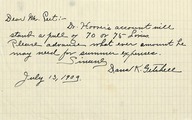 Dear Mr. Peet:-
Dr. Hoover's account will
stand a pull of 70 or 75 Lows
Please advance what ever amount he
may need for summer expenses.
Sincerely
Daniel K. Getchell
July 13, 1909.